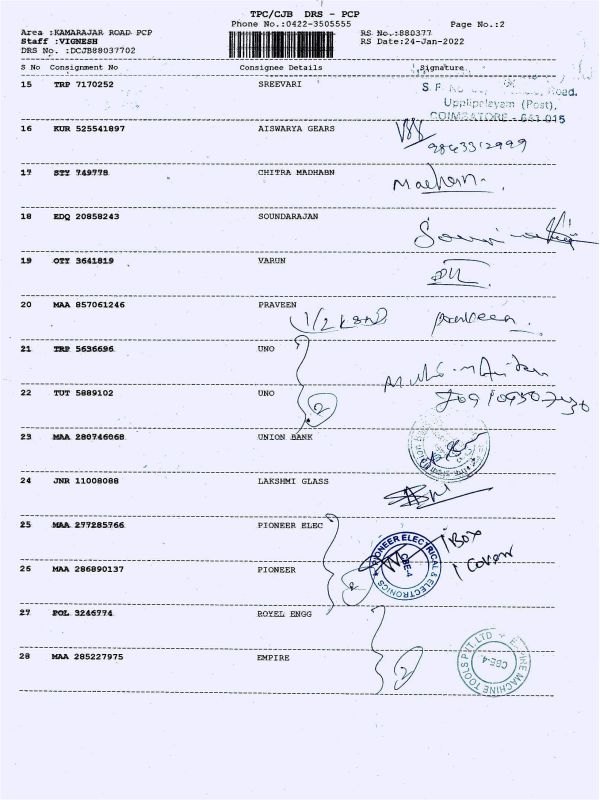 TPC/CJB DRS - PCP
Phone No.:0422-3505555 Page No.:2
Area :KAMARAJAR ROAD PCP RS No.:880377
Staff :VIGNESH RS Date:24-Jan-2022
DRS No. :DCJB88037702
S No Consignment No Consignee Details Signature
15 TRP 7170252 SREEVARI
Upplipalayam (Post),
COIMBATORE - 641 015
16 KUR 525541897 AISWARYA GEARS
17 STY 749778 CHITRA MADHABN
18 EDQ 20858243 SOUNDARAJAN
19 OTY 3641819 VARUN
20 MAA 857061246 PRAVEEN
praveen
21 TRP 5636696 UNO
22 TUT 5889102 UNO
2
23 MAA 280746068 UNION BANK
24 JNR 11008088 LAKSHMI GLASS
25 MAA 277285766 PIONEER ELEC
PIONEER ELECTRICAL & ELECTRONICS
CBE-4
1 Box
1 Cover
26 MAA 286890137 PIONEER
27 POL 3246774 ROYEL ENGG
28 MAA 285227975 EMPIRE
2
EMPIRE MACHINE TOOLS PVT. LTD
CBE-4.